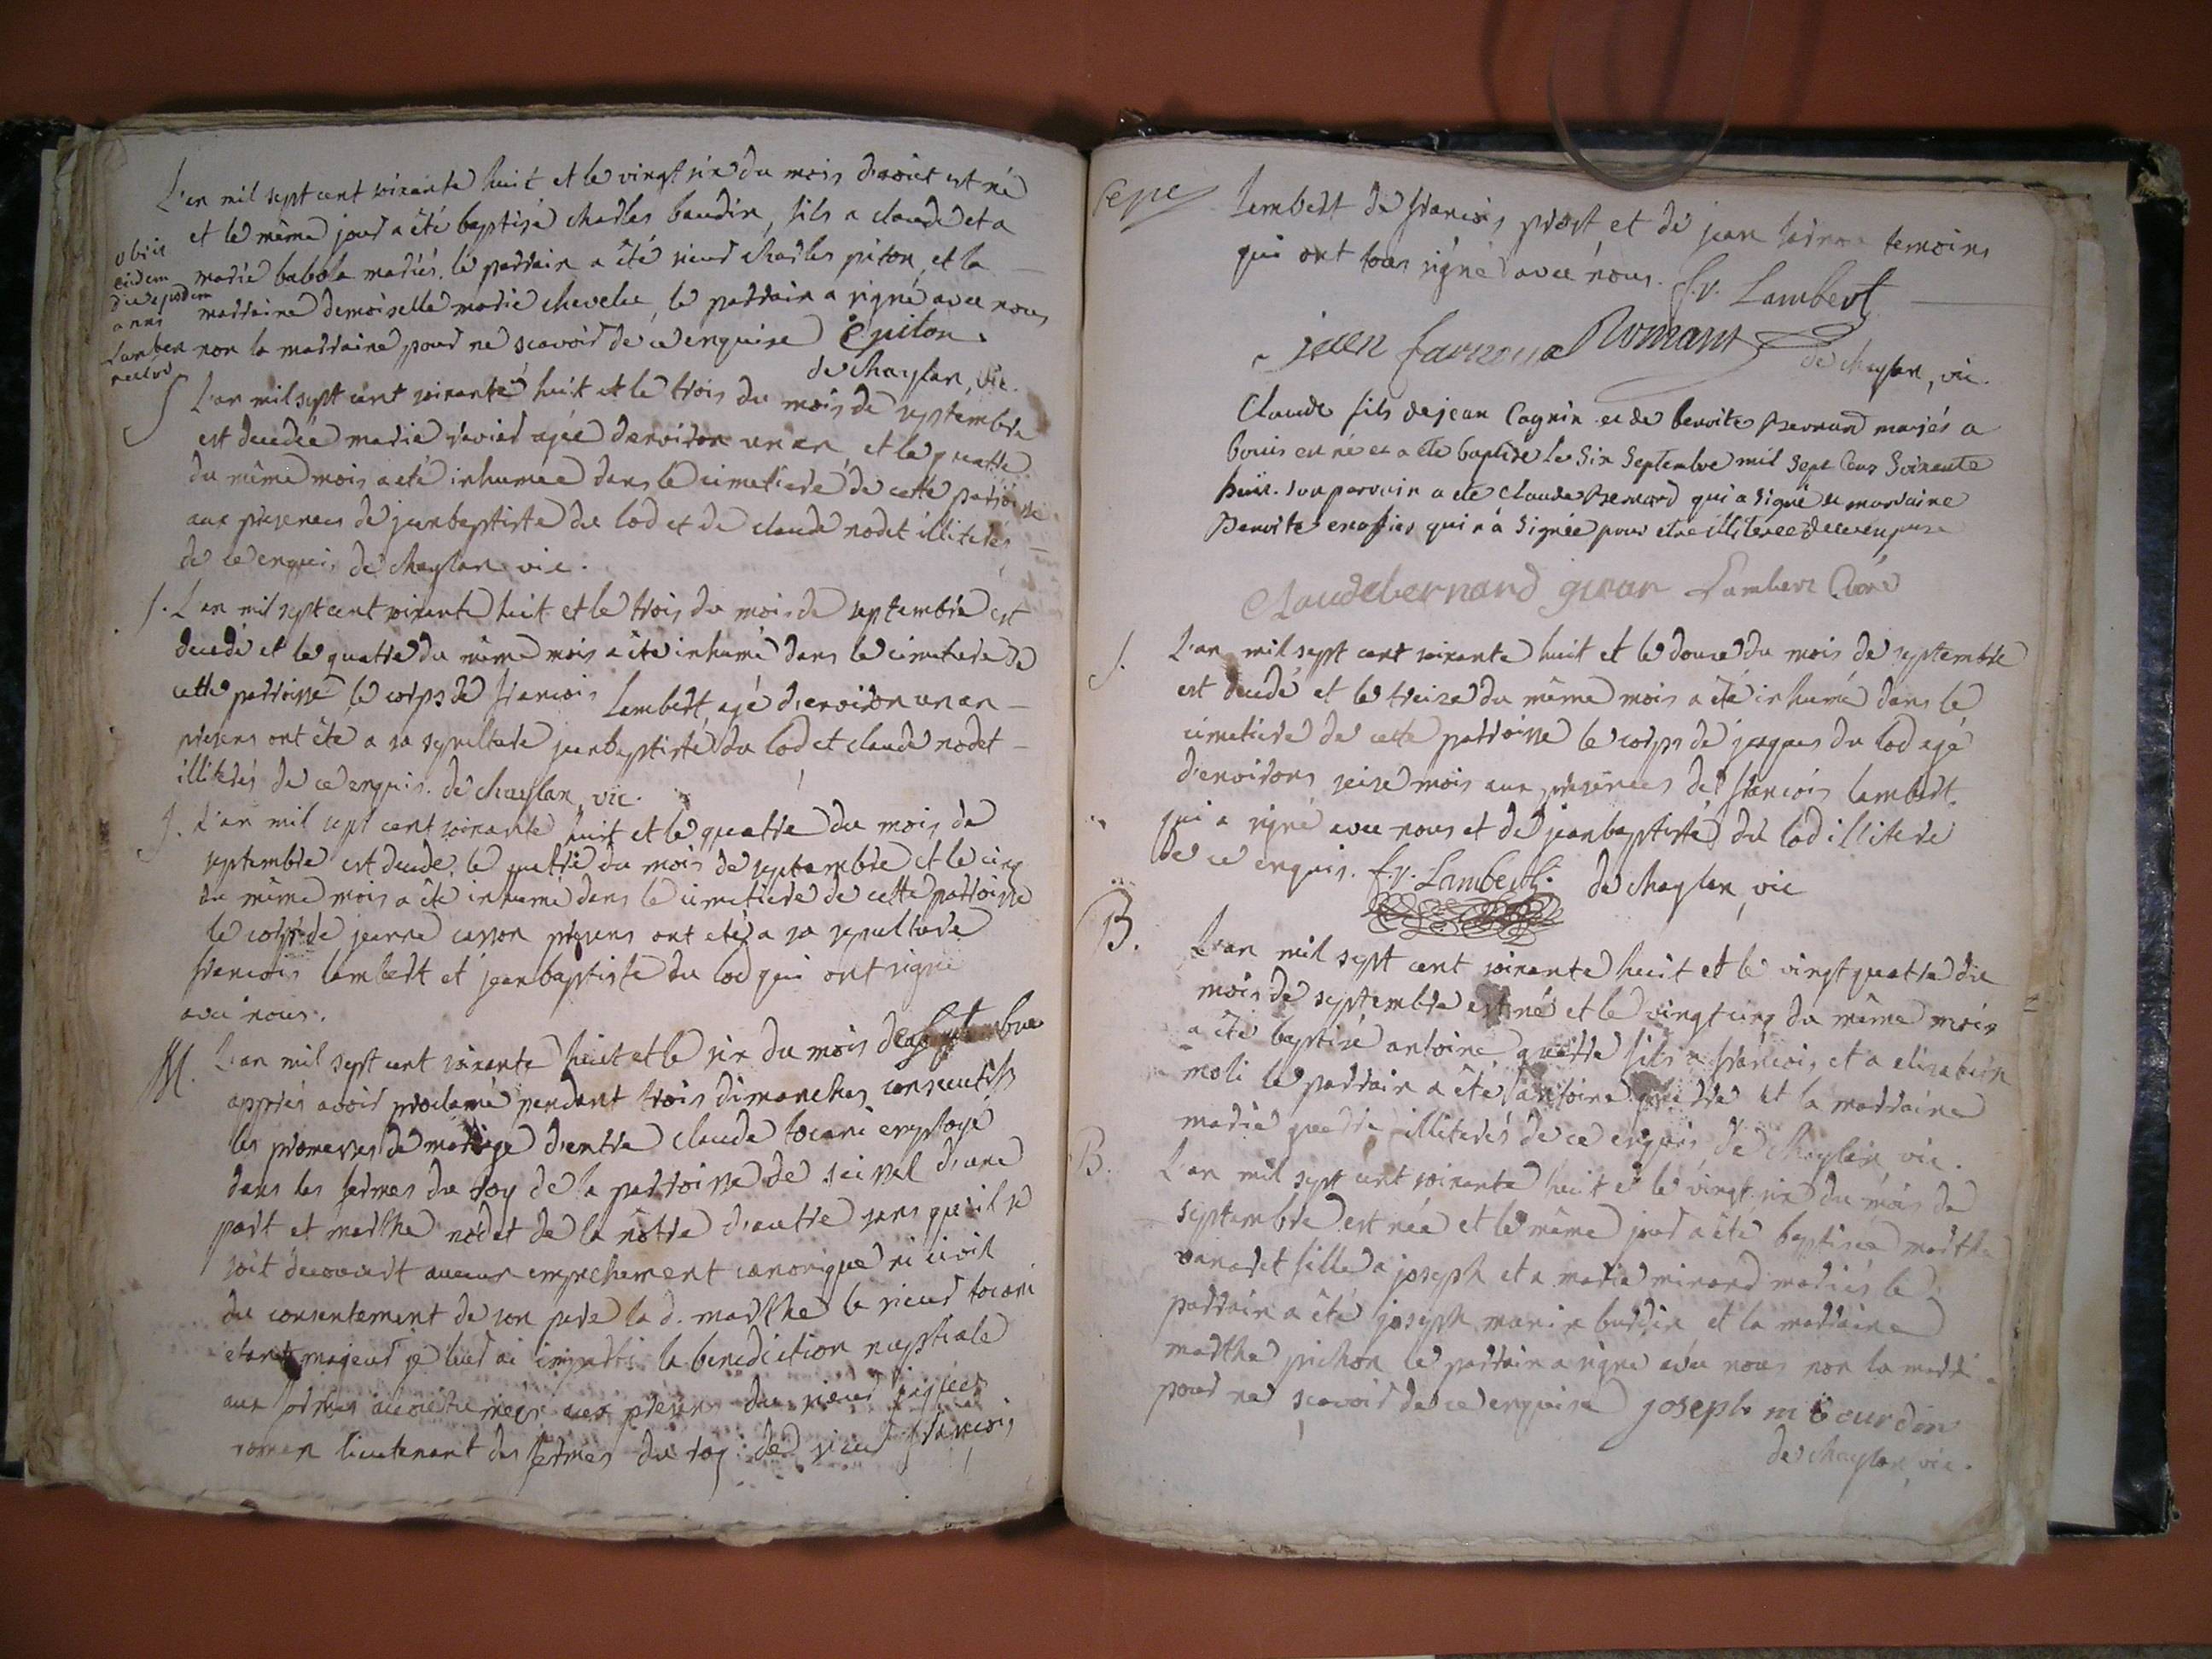 L'an mil sept cent soixante huit et le vingt six du mois d'aoüt est né
et le même jour a été baptisé charles baudin, fils a claude et a
marie babola mariés. le parrain a été sieur charles piton, et la
marraine demoiselle marie chevelu, le parrain a signé avec nous
non la marraine pour ne scavoir de ce enquise C piton
de chaylan, vic.
obiit
eidem
die ejusdem
anni
Lamber
S L'an mil sept cent soixante huit et le trois du mois de septembre
est decedée marie agée d'environ un an, et le quatre
du même mois a été inhumée dans le cimetiere de cette parroisse
aux presences de jean baptiste du lod et de claude nodet illiterés
de ce enquis. de chaylan vic.
S. L'an mil sept cent soixante huit et le trois du mois de septembre est
decedé et le quatre du même mois a été inhumé dans le cimetiere de
cette parroisse le corps de francois Lambert, agé d'environ un an
presens ont été a sa sepulture jean baptiste du lod et claude nodet
illiterés de ce enquis. de chaylan, vic.
S. L'an mil sept cent soixante huit et le quatre du mois de
septembre est decede, le quatre du mois de septembre et le cinq
du même mois a été inhumé dans le cimetiere de cette parroisse
le corps de jeanne casson presens ont eté a sa sepulture
francois lambert et jean baptiste du lod qui ont signé
avec nous.
M. L'an mil sept cent soixante huit et le six du mois de septembre
apprés avoir proclamé pendant trois dimanches consecutifs
les promesses de mariage d'entre claude tocani employé
dans les fermes du roy de la parroisse de d'une
part et marthe nodet de la nôtre d'autre sans qu'il se
soit decouvert aucun empechement canonique ni civil
du consentement de son pere la d. marthe le sieur tocani
etant majeur je leur ai imparti la benediction nuptiale
aux formes accoutumées aux presen du sieur
roman lieutenant des fermes du roy de sieur francois
lambert de francois prost et de jean temoins
qui ont tous signé avec nous. f.s. Lambert
jean Romant
de chaylan, vic.
Claude fils de jean Cagnin et de benoite Bernard mariés a
bouis est né et a été baptisé le Six Septembre mil Sept Cens Soixante
huit. son parrain a été Claude Bernard qui a Signé et marraine
Benoite qui n'a Signée pour etre illiterée de ce enquise
Claude bernard Lambert Curé
S. L'an mil sept cent soixante huit et le douze du mois de septembre
est decedé et le treize du même mois a été inhumé dans le
cimetiere de cette parroisse le corps de jacques du lod agé
d'environs seize mois aux presences de francois lambert
qui a signé avec nous et de jean baptiste du lod illitere
de ce enquis. f.s. Lambert. de chaylan, vic
B. L'an mil sept cent soixante huit et le vingt quatre du
mois de septembre est né et le vingt cinq du même mois
a été baptisé antoine fils a francois et a elizabeth
moli le parrain a été antoine et la marraine
marie illiterés de ce enquis de chaylan vic.
B. L'an mil sept cent soixante huit et le vingt six du mois de
septembre est née et le même jour a été baptisée marthe
fille a joseph et a marie minard mariés le
parrain a été joseph marie burdin et la marraine
marthe pichon le parrain a signé avec nous non la marr
pour ne scavoir de ce enquise joseph m
de chaylan, vic.